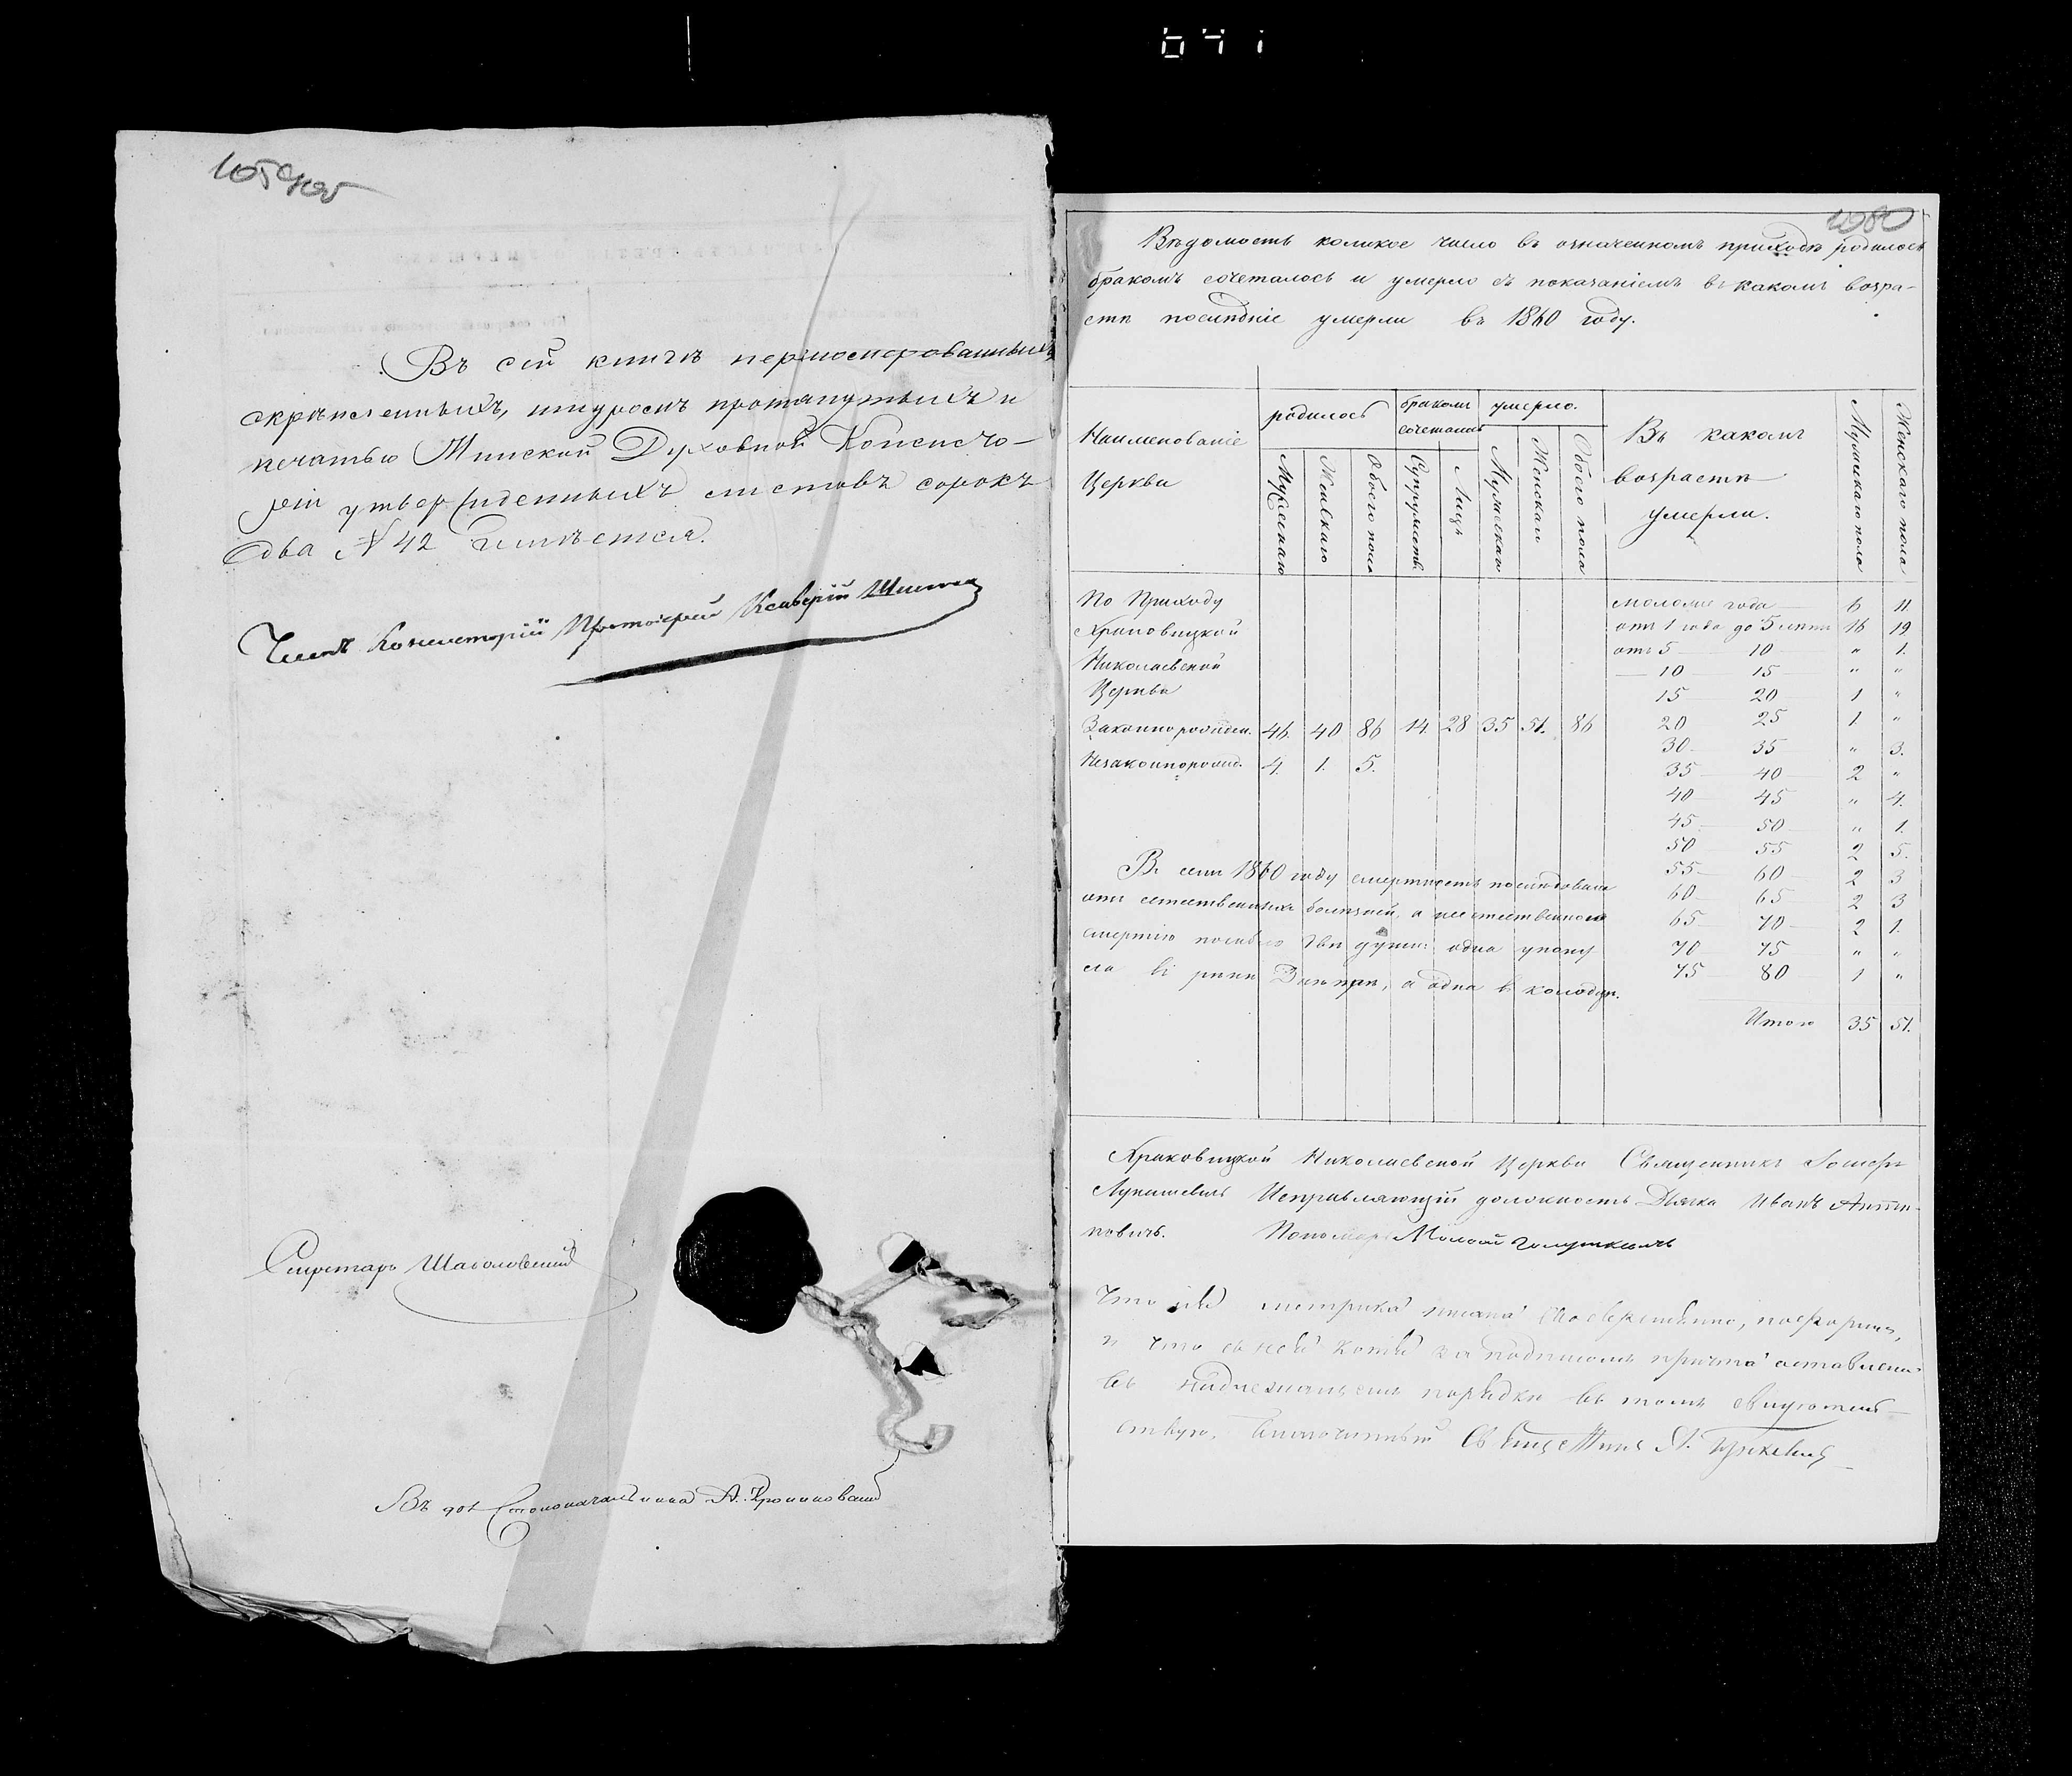 Въ сей книгѣ перешнурованныхъ
скрѣпленныхъ, шнуромъ протянутыхъ и
печатью Минской Духовной Консисто-
ріи утвержденныхъ листовъ сорокъ
два № 42 имѣется.
Членъ Консисторіи Протоіерей
Секретарь
Въ дол. Столоначальника А.
Вѣдомость коликое число въ означенномъ приходѣ родилось
бракомъ сочеталось и умерло съ показаніемъ въ какомъ возра-
стѣ послѣдніе умерли въ 1860 году.
Наименованіе Церкви
родилось
бракомъ сочеталис
умерло.
Въ какомъ возрастѣ умерли.
Мужескаго пола
Женскаго пола
Мужескаго
Женскаго
Обоего пола
Супружествъ
Лицъ
Мужескаго
Женскаго
Обоего пола
По Приходу
Николаевской
Церкви
Законнорожден. 46. 40 86 14. 28 35 51. 86
Незаконнорожд. 4. 1. 5.
моложе года 6 11.
отъ 1 года до 5 лѣтъ 16 19
отъ 5 10 " 1.
10 15 " "
15 20 1 "
20 25 1 "
30 35 " 3.
35 40 2 "
40 45 " 4.
45 50 " 1.
50 55 2 5.
55 60 2 3
60 65 2 3
65 70 2 1.
70 75 " "
75 80 1 "
Итого 35 51.
Въ семъ 1860 году смертность послѣдовала
отъ естественныхъ болѣзней, а неестественною
смертію погибло двѣ души: одна утону
ла въ рѣкѣ Днѣпрѣ, а одна въ колодцѣ.
Николаевской Церкви Священникъ Іосифъ
Исправляющій должность Дьячка Иванъ Анто-
новичъ. Пономарь
Что сія метрика писана своевременно, по формѣ,
и что съ ней копія за подписомъ причта оставлена
въ надлежащемъ порядкѣ въ томъ свидѣтель-
ствую. Благочинный Священникъ